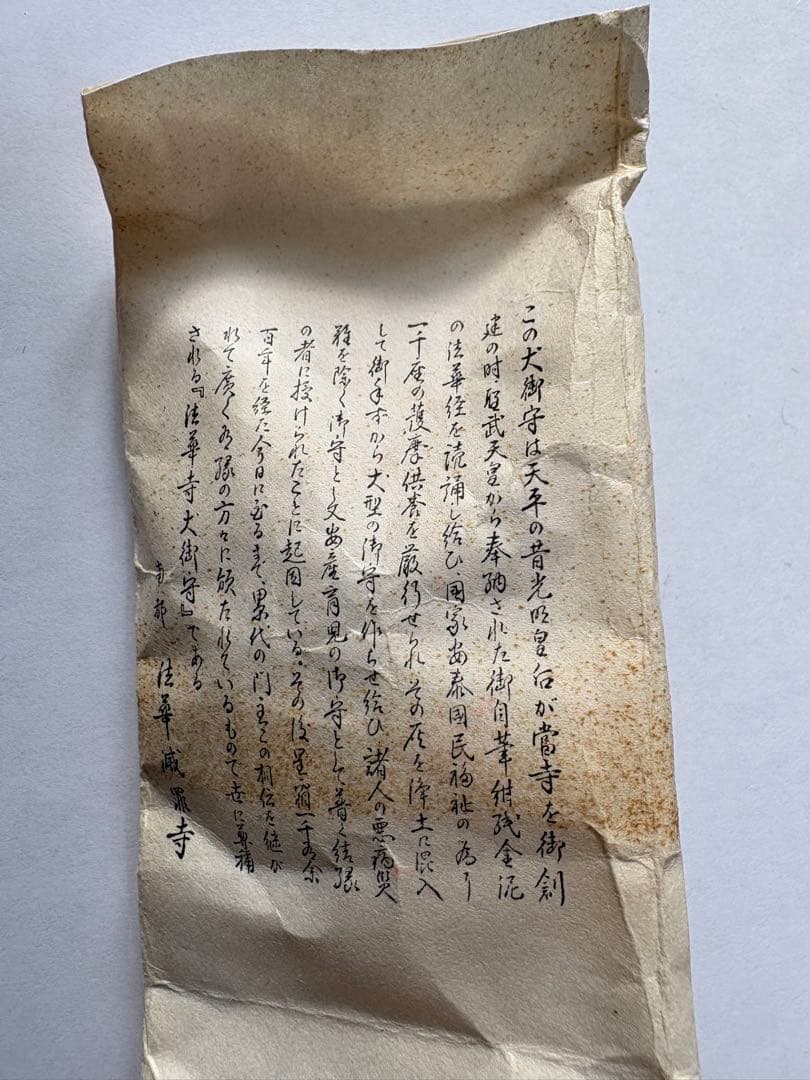 この犬御守は天平の昔光明皇后が當寺を御創
建の時、聖武天皇から奉納された御自筆紺紙金泥
の法華経を読誦し給ひ國家安泰國民福祉の為め
一千座の護摩供養を厳行せられその灰を浄土に混入
して御手ずから犬型の御守を作らせ給ひ諸人の悪病災
難を除く御守とし又安産育児の御守として普く結縁
の者に授けられたことに起因している。その後星霜一千有余
百年を経た今日に至るまで、累代の門主この相伝を継が
れて廣く有縁の方々に頒たれているもので世に尊稱
される『法華寺犬御守』である
南都 法華滅罪寺